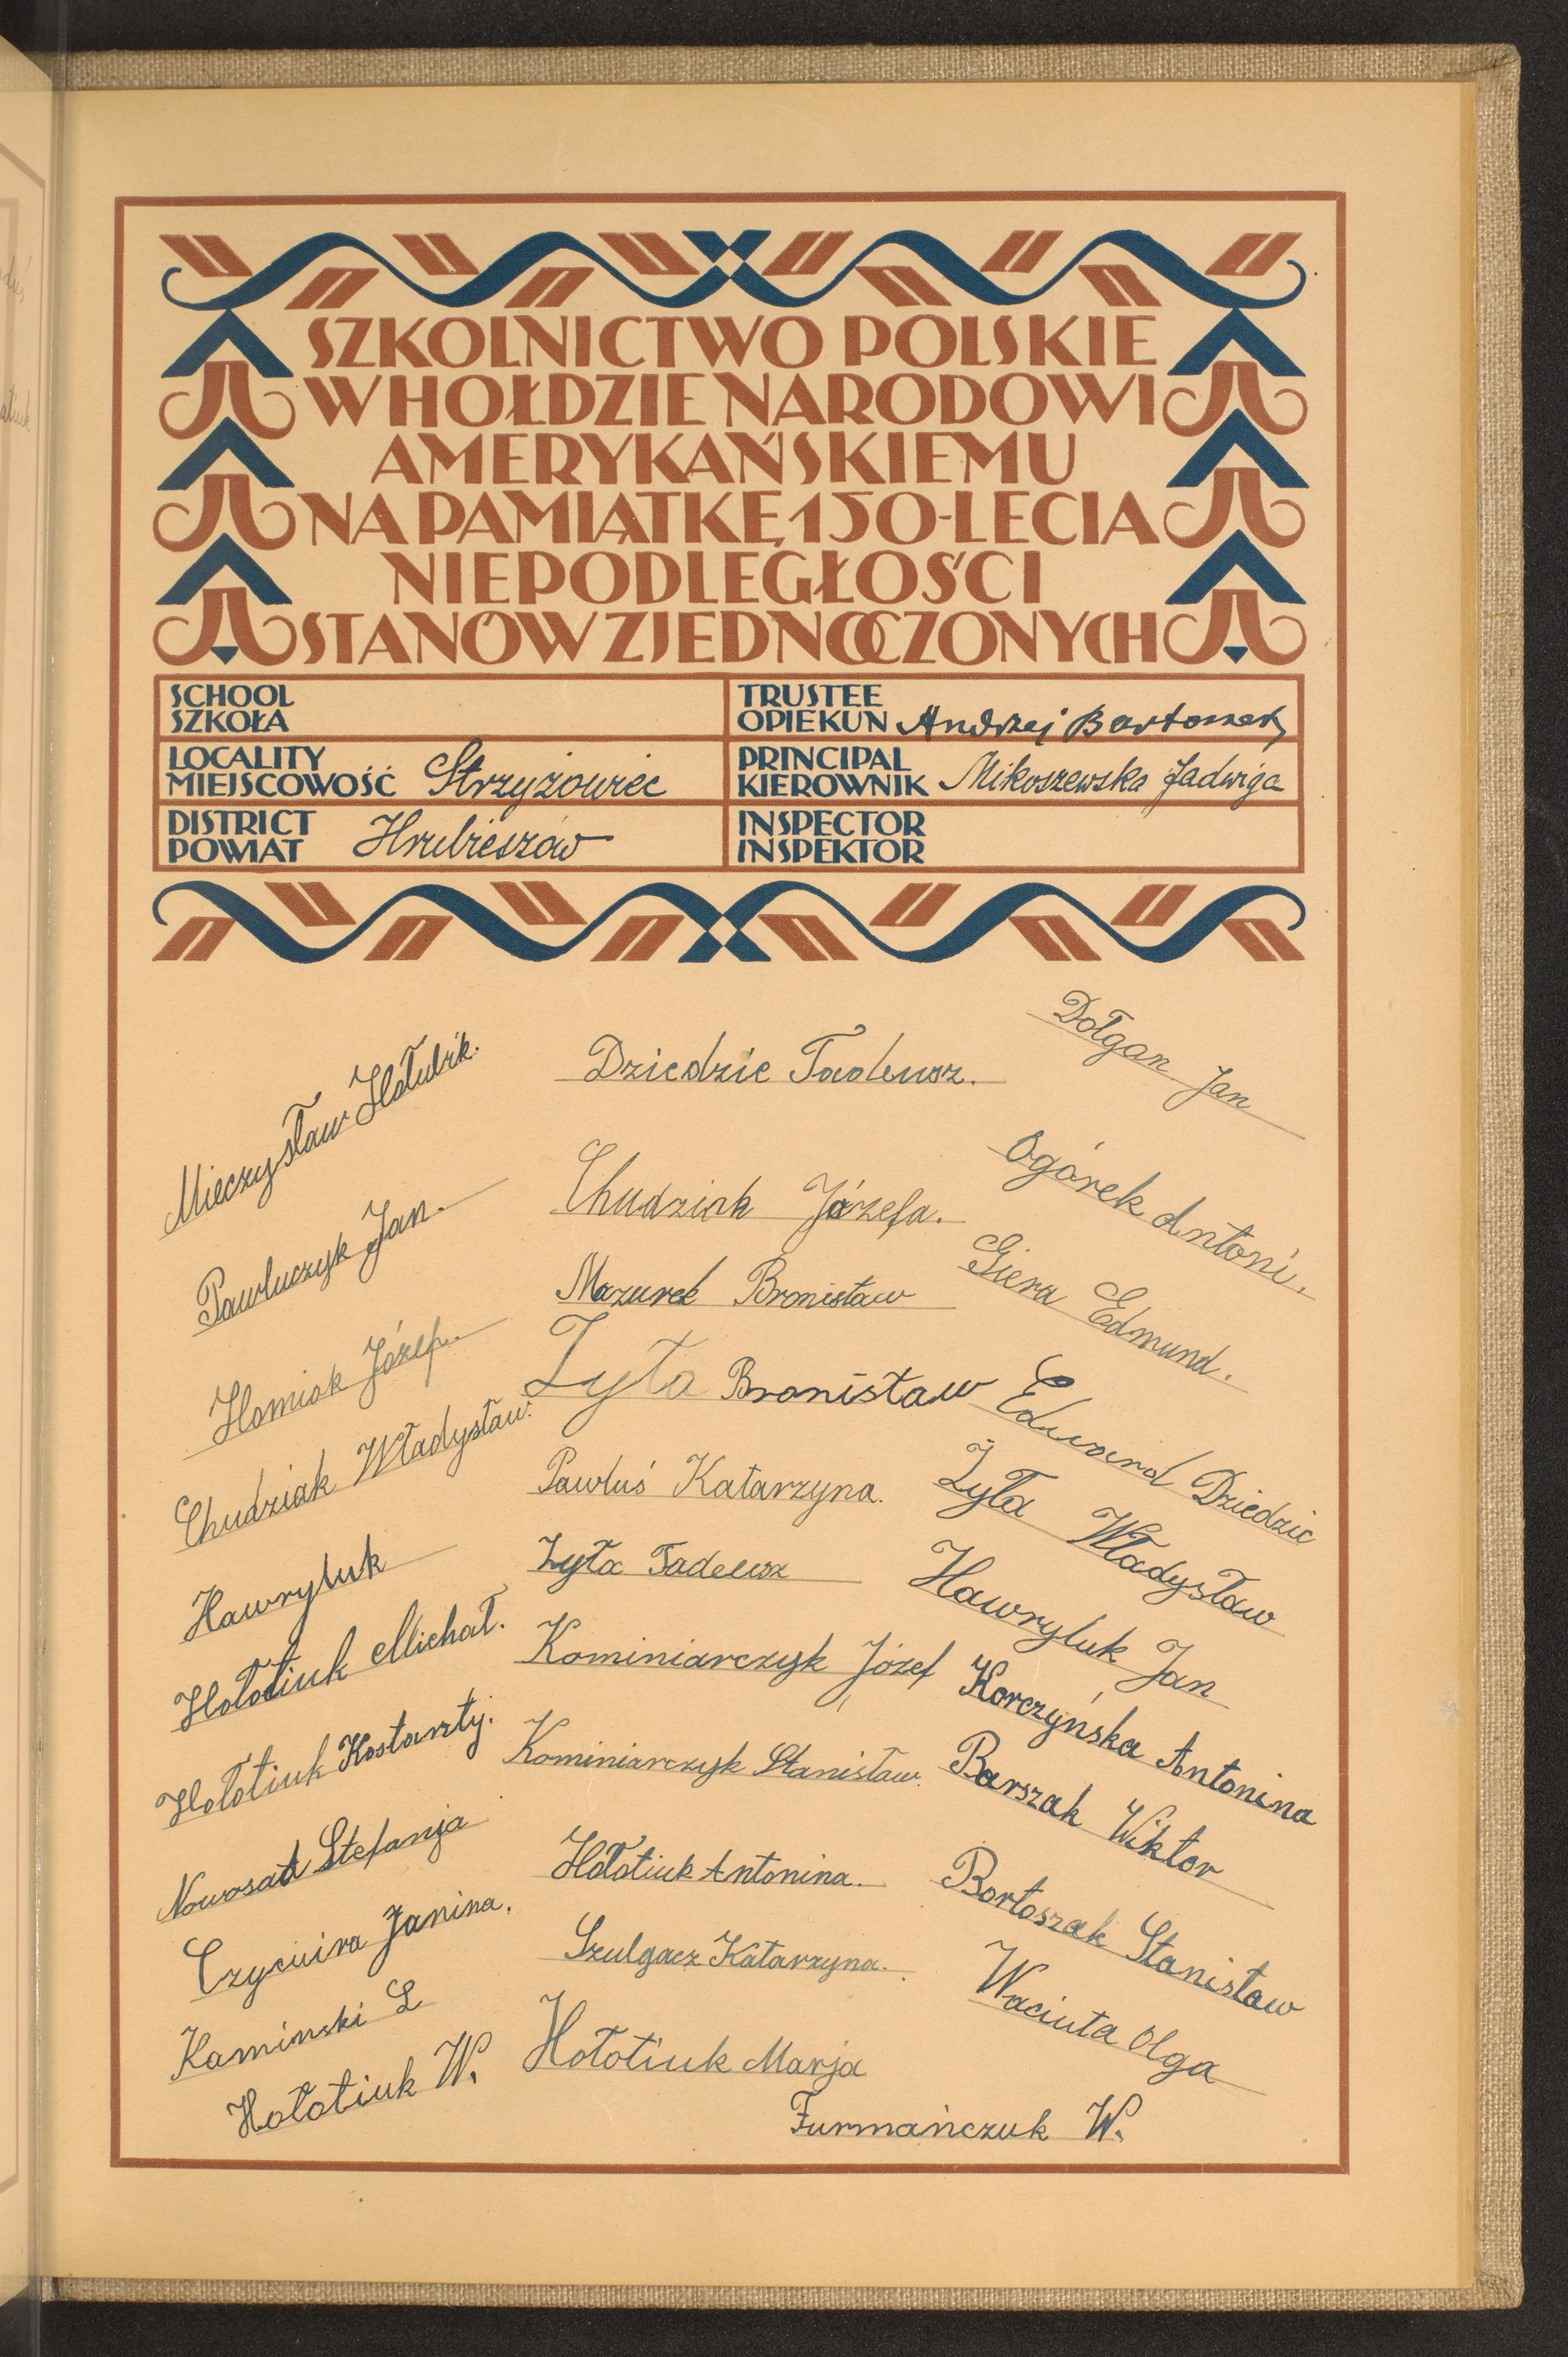 SZKOLNICTWO POLSKIE
W HOŁDZIE NARODOWI
AMERYKAŃSKIEMU
NA PAMIĄTKĘ 150-LECIA
NIEPODLEGŁOŚCI
STANÓW ZJEDNOCZONYCH
SCHOOL
SZKOŁA
TRUSTEE
OPIEKUN Andrzej Bartoszek
LOCALITY
MIEJSCOWOŚĆ Strzyżowiec
PRINCIPAL
KIEROWNIK Mikoszewska Jadwiga
DISTRICT
POWIAT Hrubieszów
INSPECTOR
INSPEKTOR
Mieczysław Hołubik.
Pawluczyk Jan.
Homiak Józef.
Chudziak Władysław.
Hawryluk
Hołotiuk Michał.
Hołotiuk Kostanty.
Nowosad Stefanja
Czycwira Janina.
Kaminski L
Hołotiuk W.
Dziedzic Tadeusz.
Chudziak Józefa.
Mazurek Bronisław
Żyła Bronisław
Pawluś Katarzyna.
Żyła Tadeusz
Kominiarczyk Józef
Kominiarczyk Stanisław.
Hołotiuk Antonina.
Szulgacz Katarzyna.
Hołotiuk Marja
Furmańczuk W.
Dołgan Jan
Ogórek Antoni.
Giera Edmund.
Edward Dziedzic
Żyła Władysław
Hawryluk Jan
Korczyńska Antonina
Barszak Wiktor
Bortoszak Stanisław
Waciuta Olga